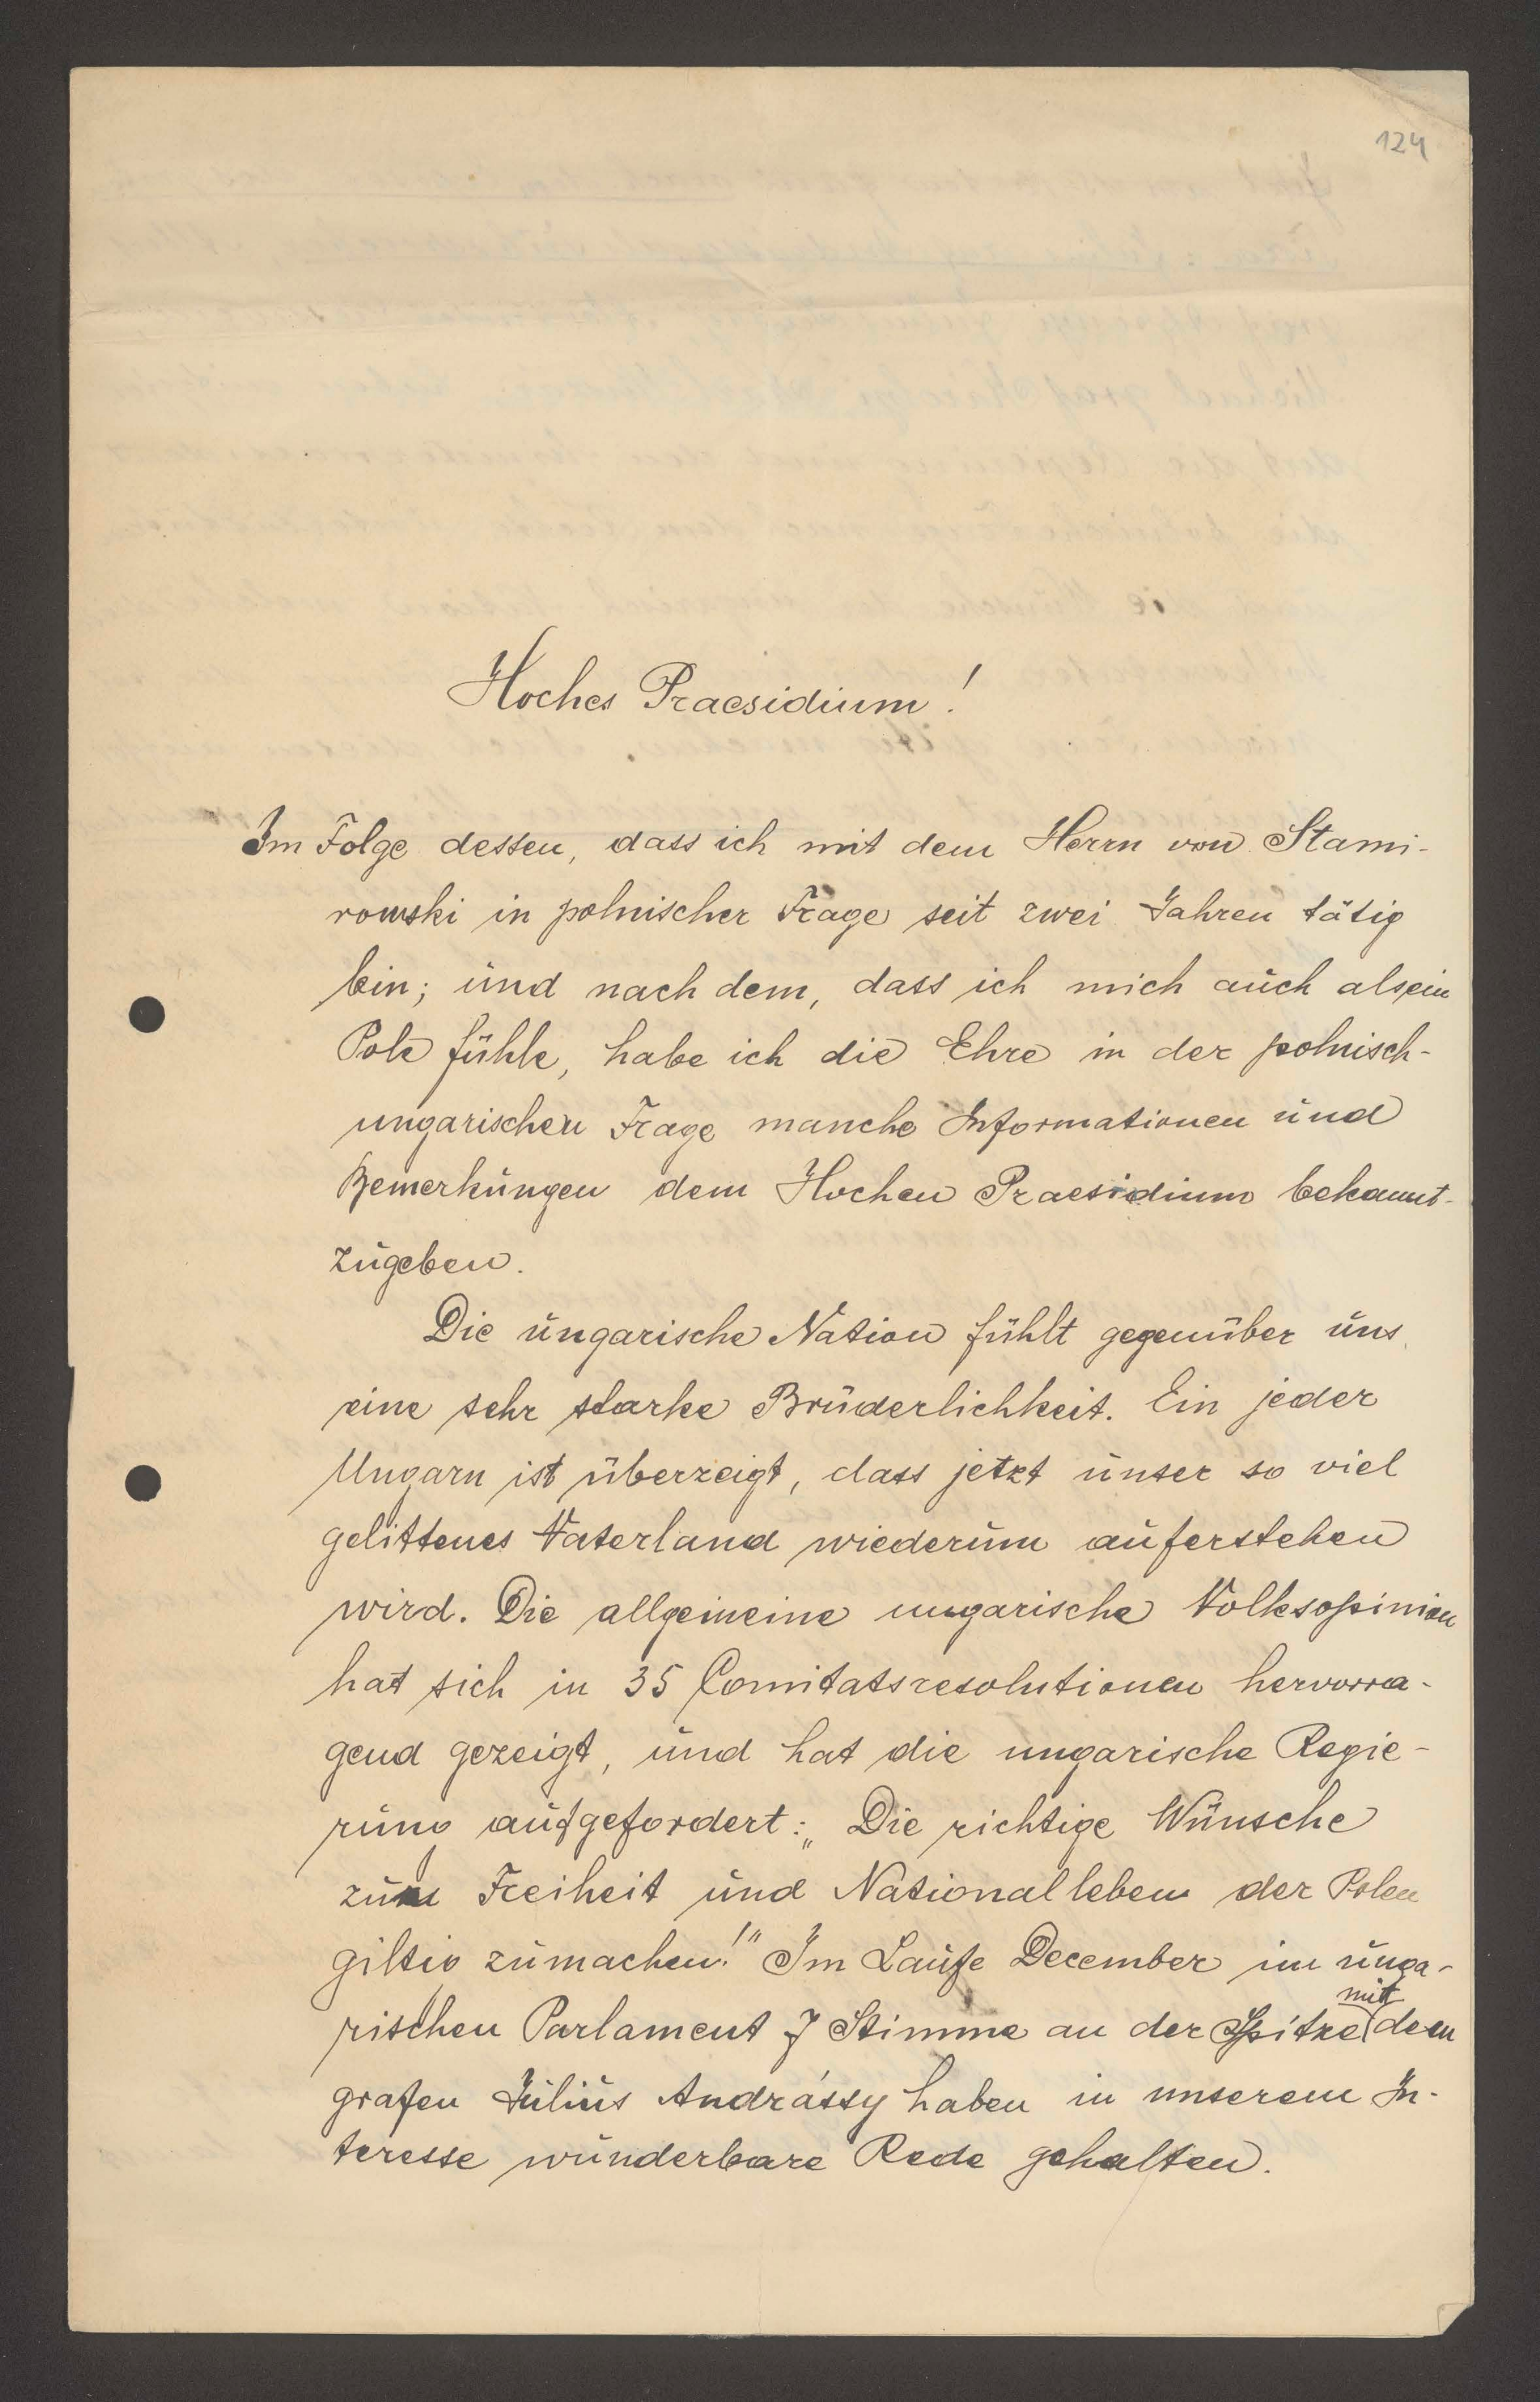 124
Hoches Praesidium!
Im Folge dessen, dass ich mit dem Herrn von Stami-
rowski in polnischer Frage seit zwei Jahren tätig
bin; und nach dem, dass ich mich auch als ein
Pole fühle, habe ich die Ehre in der polnisch-
ungarischen Frage manche Informationen und
Bemerkungen dem Hochen Praesidium bekannt-
zugeben.
Die ungarische Nation fühlt gegenüber uns
eine sehr starke Brüderlichkeit. Ein jeder
Ungarn ist überzeigt, dass jetzt unser so viel
gelittenes Vaterland wiederum auferstehen
wird. Die allgemeine ungarische Volksopinion
hat sich in 35 Comitatsresolutionen hervorra-
gend gezeigt, und hat die ungarische Regie-
rung aufgefordert: „Die richtige Wünsche
zum Freiheit und Nationalleben der Polen
giltig zumachen!" Im Laufe December im unga-
rischen Parlament 7 Stimme an der Spitze mit dem
grafen Julius Andrássy haben in unserem In-
teresse wunderbare Rede gehalten.